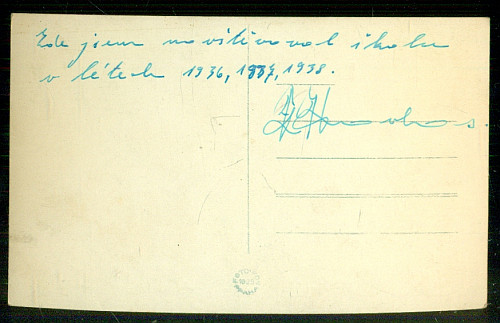 Zde jsem navštěvoval školu
v létech 1936, 1937, 1938.